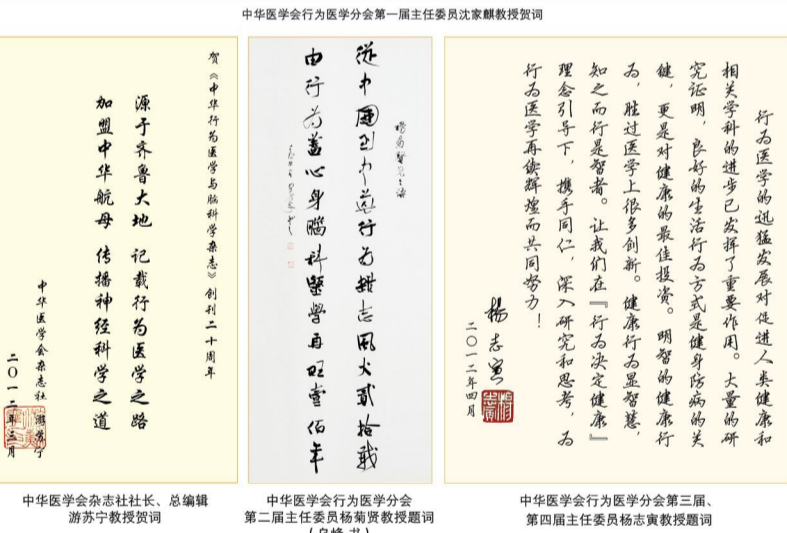 中华医学会行为医学分会第一届主任委员沈家麒教授贺词
贺《中华行为医学与脑科学杂志》创刊二十周年
源于齐鲁大地 记载行为医学之路
加盟中华航母 传播神经科学之道
中华医学会杂志社 游苏宁
二〇一二年三月
中华医学会杂志社社长、总编辑
游苏宁教授贺词
杨菊贤
從中國到中華行为雜志風火貳拾載
由行为蓋心身腦科醫學再旺壹佰年
中华医学会行为医学分会
第二届主任委员杨菊贤教授题词
行为医学的迅猛发展对促进人类健康和
相关学科的进步已发挥了重要作用。大量的研
究证明，良好的生活行为方式是健身防病的关
键，更是对健康的最佳投资。明智的健康行
为，胜过医学上很多创新。健康行为显智慧，
知之而行是智者。让我们在『行为决定健康』
理念引导下，携手同仁，深入研究和思考，为
行为医学再续辉煌而共同努力！
杨志寅
二〇一二年四月
中华医学会行为医学分会第三届、
第四届主任委员杨志寅教授题词